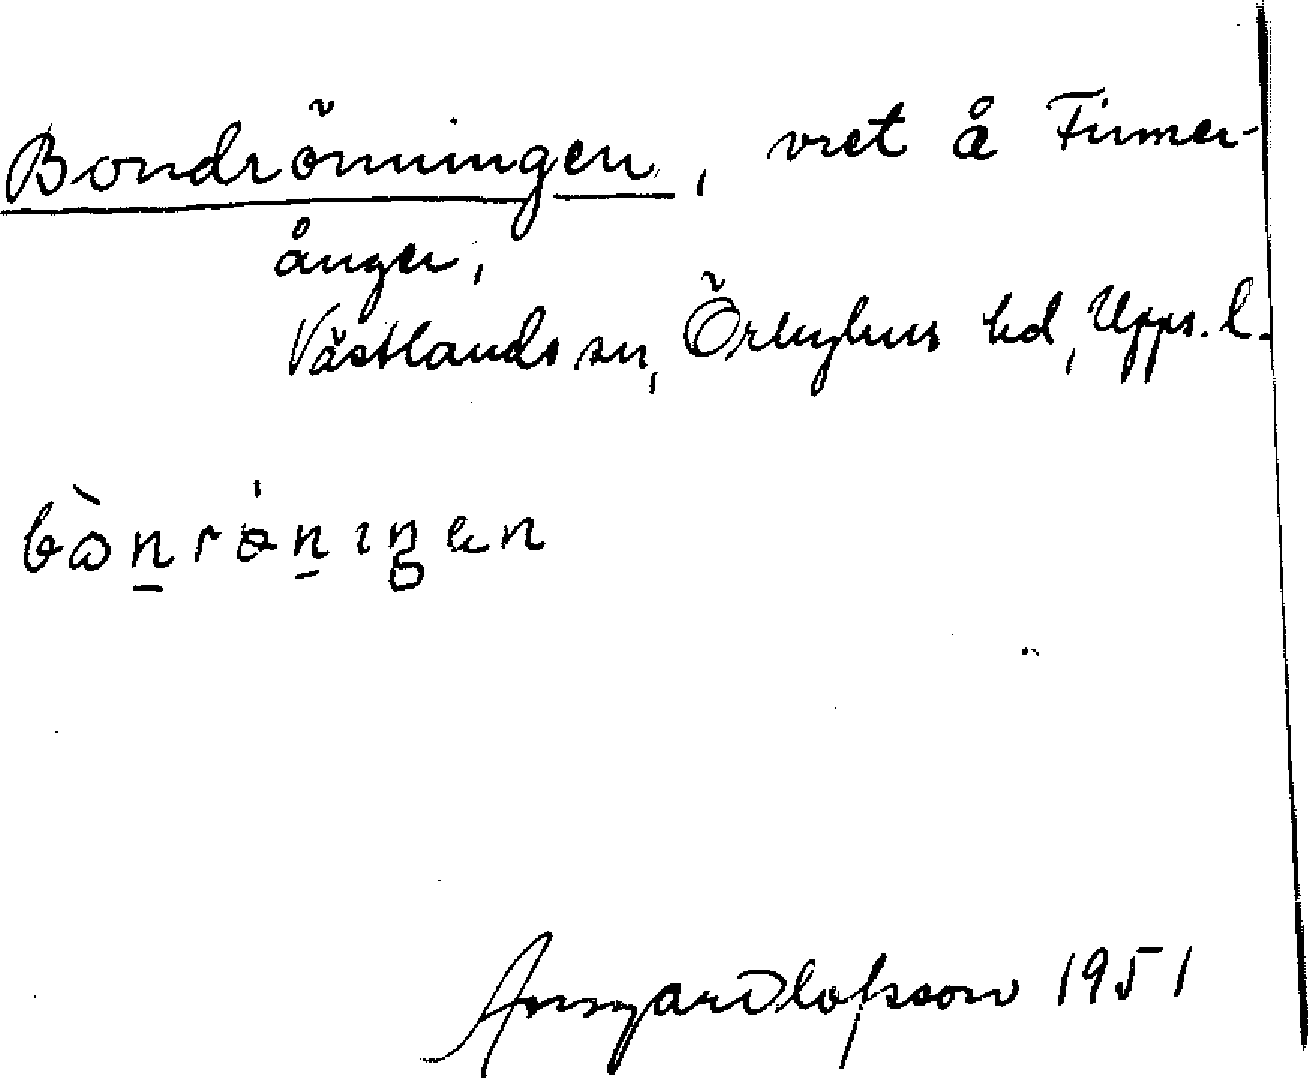 Bondrönningen, vret å Firmer-
ånger,
Västlands sn, Örbyhus hd, Upps. l.
Ansgar Olofsson 1951